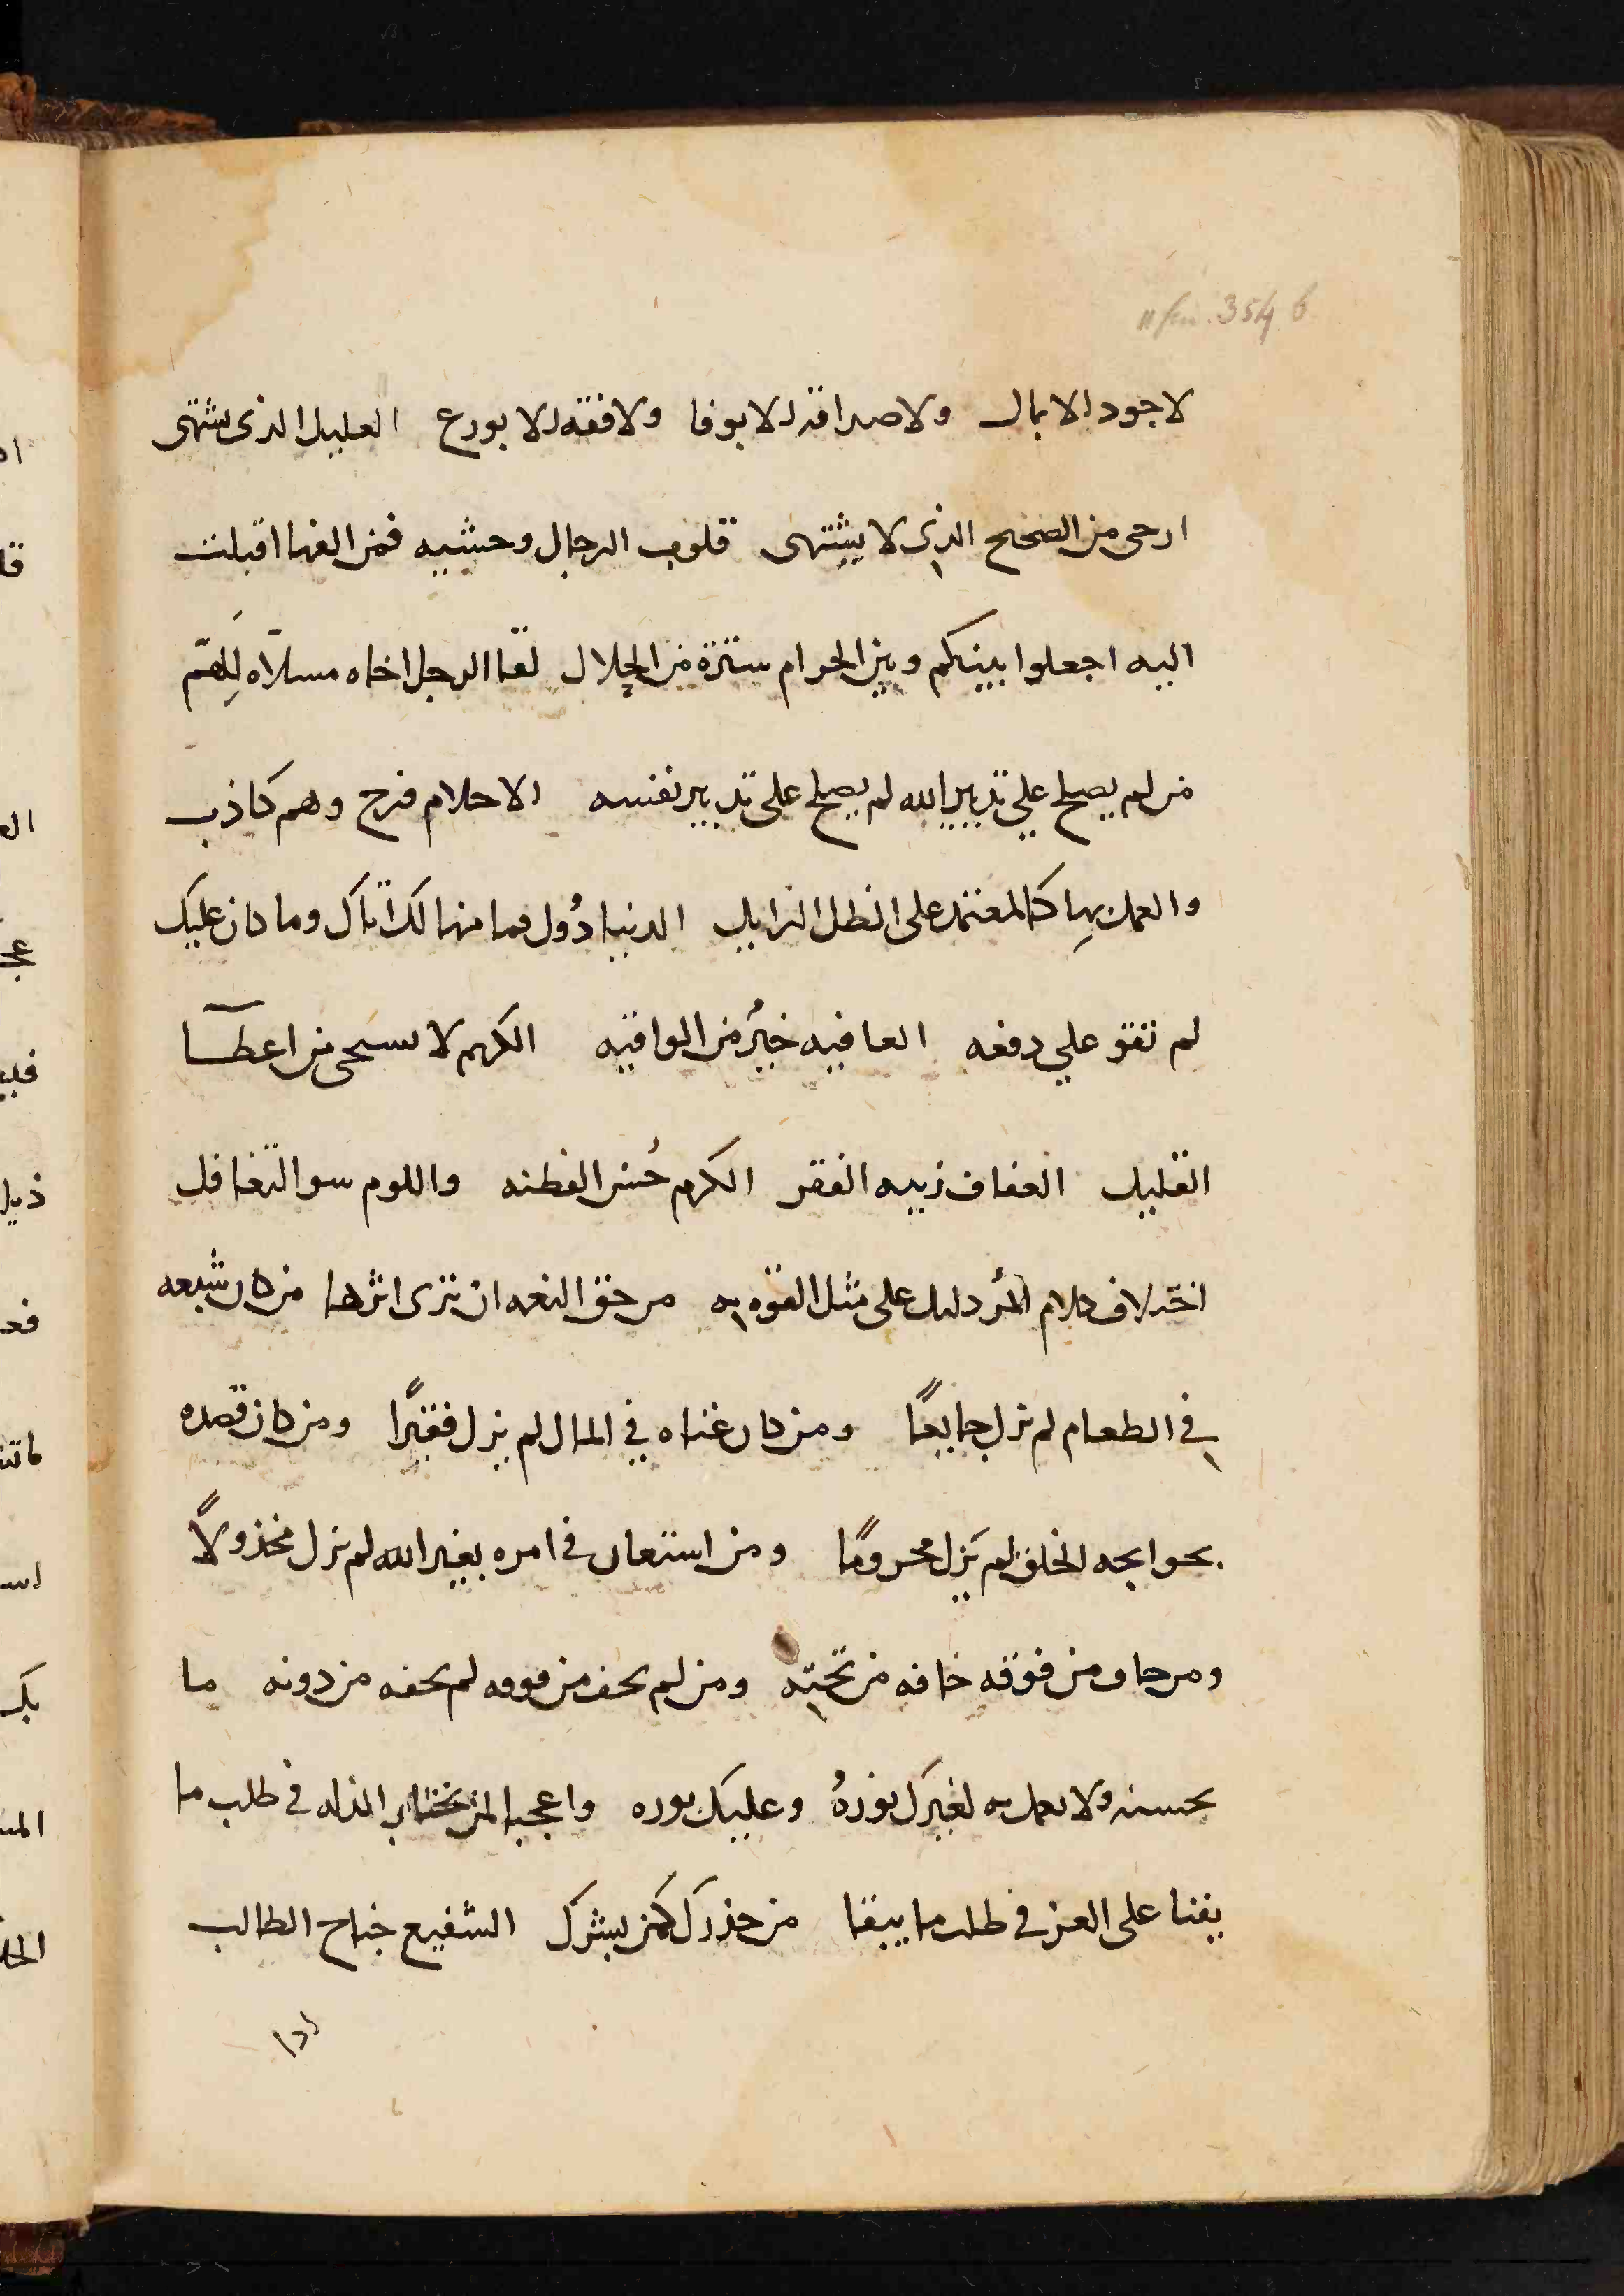 لا جود الا بمال ولا صداقه الا بوفا ولا فقه الا بورع العليل الذى يشتهى
ارجى من الصحيح الذى لا يشتهى قلوب الرجال وحشيه فمن الفها اقبلت
اليه اجعلوا بينكم وبين الحرام سترة من الحلال لقا الرجل اخاه مسلاه للهم
من لم يصلح على تدبير الله لم يصلح على تدبير نفسه الاحلام فرح وهم كاذب
والعمل بها كالمعتمد على الظل الزايل الدنيا دُول فما منها لك اتاك وما كان عليك
لم تقو على دفعه العافيه خيرُ من الواقيه الكريم لا يستحى من اعطآ
القليل العفاف زينه الفقر الكرم حُسن الفطنه واللوم سو التغافل
اختلاف كلام المرُ دليل على مثل القوه به من حق النعمه ان ترى اثرها من كان شبعه
فى الطعام لم يزل جايعًا ومن كان غناه في المال لم يزل فقيرًا ومن كان قصده
بحوايجه الخلق لم يزل محرومًا ومن استعان فى امره بغير الله لم يزل مخذولًا
ومن خاف من فوقه خافه من تحته ومن لم يخف من فوقه لم يخفه من دونه ما
تحسنه ولا تعمل به لغيرك نورهُ وعليك بوره واعجبا لمن يختار المذله فى طلب ما
يفنا على العز فى طلب ما يبقا من حذرك كمن بشرك الشفيع جناح الطالب